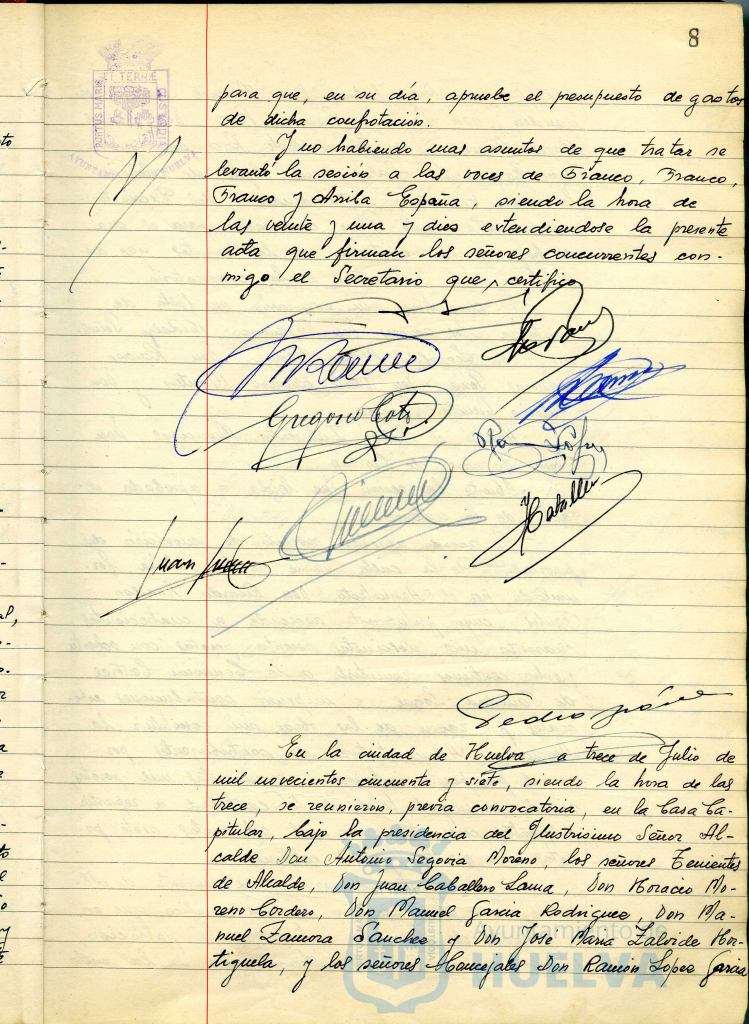 8
PORTUS MARIS
ET TERRAE
CUSTODIA
para que, en su día, apruebe el presupuesto de gastos
de dicha confrotación.
Y no habiendo mas asuntos de que tratar se
levantó la sesión a las voces de Franco, Franco,
Franco y Arriba España, siendo la hora de
las veinte y una y diez extendiendose la presente
acta que firman los señores concurrentes con-
migo el Secretario que, certifico
Gregorio Coto
Caballero
Juan
Pedro
En la ciudad de Huelva, a trece de Julio de
mil novecientos cincuenta y siete, siendo la hora de las
trece, se reunieron, previa convocatoria, en la Casa Ca-
pitular, bajo la presidencia del Ilustrisimo Señor Al-
calde Don Antonio Segovia Moreno, los señores Tenientes
de Alcalde, Don Juan Caballero Lama, Don Horacio Mo-
reno Cordero, Don Manuel Garcia Rodriguez, Don Ma-
nuel Zamora Sanchez y Don José Maria Zalvide Hor-
tiguela, y los señores Concejales Don Ramón Lopez Garcia
Ayuntamiento de
HUELVA